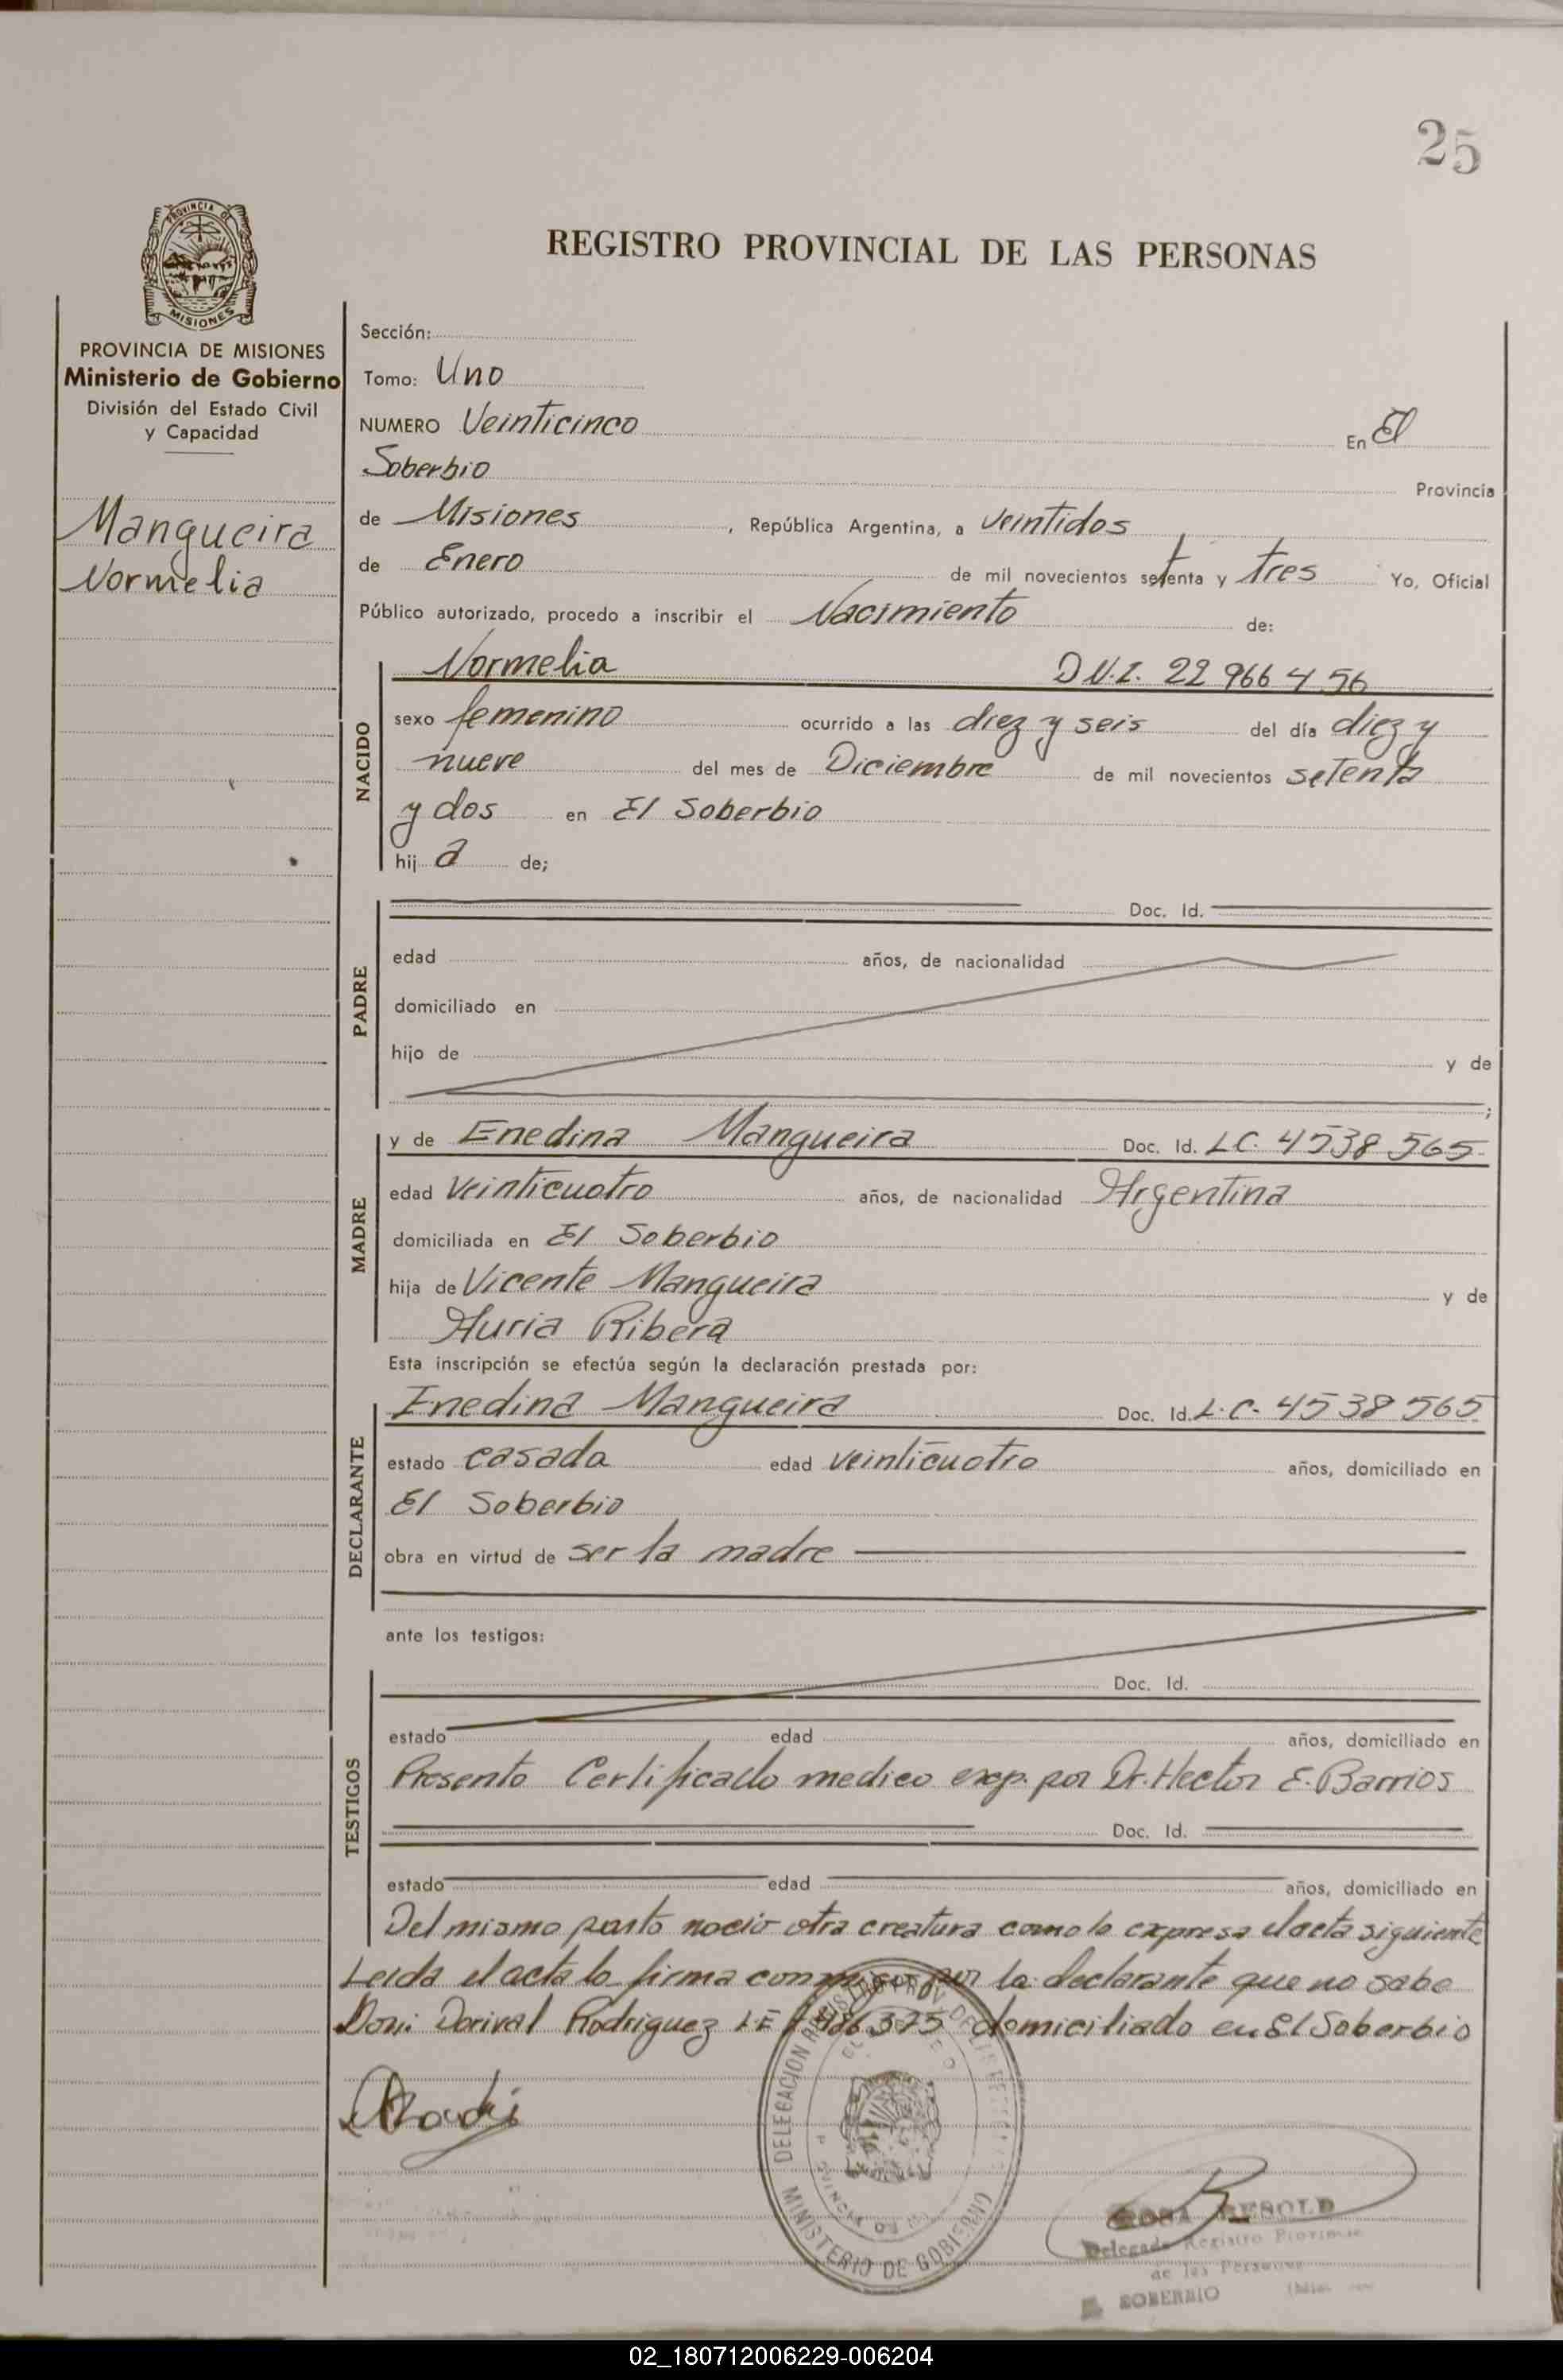 25
PROVINCIA DE
MISIONES
REGISTRO PROVINCIAL DE LAS PERSONAS
PROVINCIA DE MISIONES
Ministerio de Gobierno
División del Estado Civil
y Capacidad
Mangueira
Normelia
Sección:
Tomo: Uno
NUMERO Veinticinco En El
Soberbio Provincia
de Misiones, República Argentina, a veintidos
de Enero de mil novecientos setenta y tres Yo, Oficial
Público autorizado, procedo a inscribir el Nacimiento de:
NACIDO
Normelia D.N.I. 22 966 456
sexo femenino ocurrido a las diez y seis del día diez y
nueve del mes de Diciembre de mil novecientos setenta
y dos en El Soberbio
hij a de;
PADRE
Doc. Id.
edad años, de nacionalidad
domiciliado en
hijo de y de
;
MADRE
y de Enedina Mangueira Doc. Id. L.C. 4538565
edad Veinticuatro años, de nacionalidad Argentina
domiciliada en El Soberbio
hija de Vicente Mangueira y de
Auria Ribera
Esta inscripción se efectúa según la declaración prestada por:
DECLARANTE
Enedina Mangueira Doc. Id. L.C. 4538565
estado casada edad veinticuatro años, domiciliado en
El Soberbio
obra en virtud de ser la madre
ante los testigos:
TESTIGOS
Doc. Id.
estado edad años, domiciliado en
Presento Certificado medico exp. por Dr. Hector E. Barrios
Doc. Id.
estado edad años, domiciliado en
Del mismo parto nacio otra creatura como lo expresa el acta siguiente
Leida el acta lo firma conmigo por la declarante que no sabe
Doni Dorival Rodriguez LE domiciliado en El Soberbio
DELEGACION REGISTRO PROV. DE LAS
MINISTERIO DE GOBIERNO
ROSA RESOLD
Delegada Registro Provincial
de las Personas
SOBERBIO
02_180712006229-006204